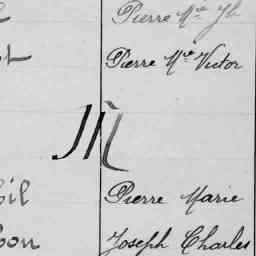 Pierre Mie Jh
Pierre Mie Victor
M
Pierre Marie
Joseph Charles